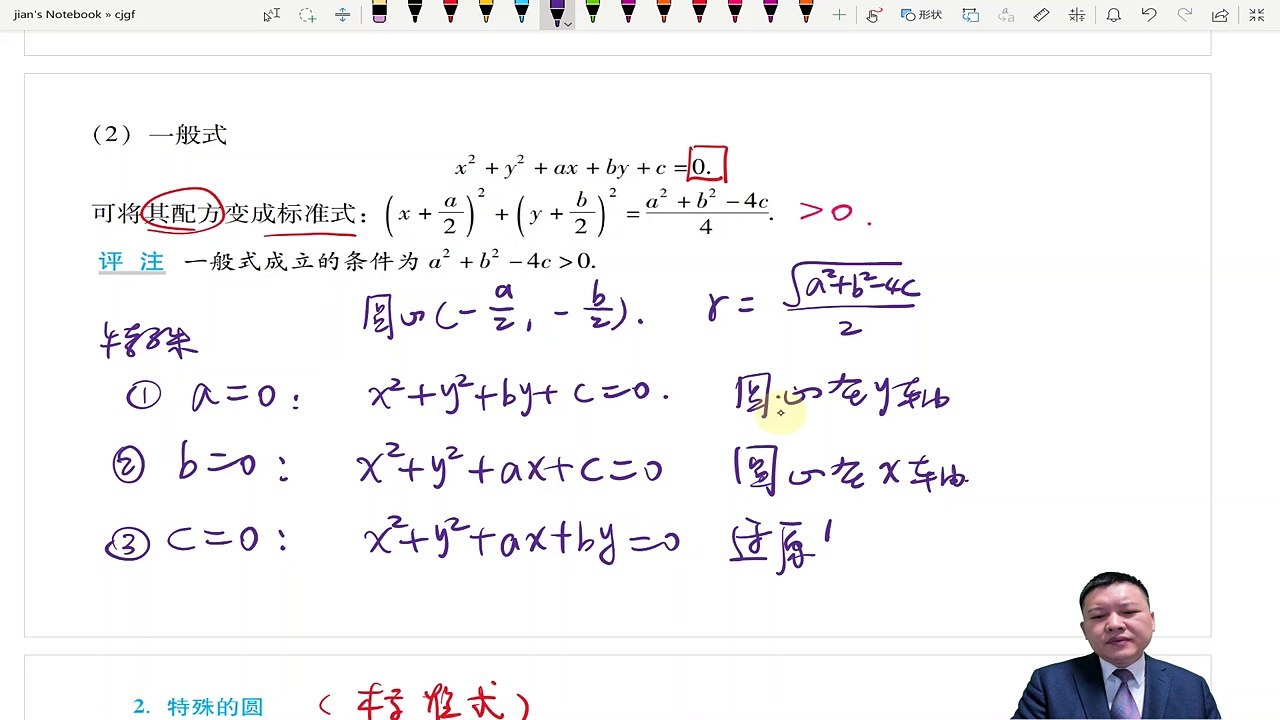 jian's Notebook » cjgf
形状
(2) 一般式
x² + y² + ax + by + c = 0.
可将其配方变成标准式: (x + a/2)² + (y + b/2)² = (a² + b² − 4c)/4. >0.
评注 一般式成立的条件为 a² + b² − 4c > 0.
圆心(−a/2, −b/2). r = √(a²+b²−4c)/2
特殊
① a=0: x²+y²+by+c=0. 圆心在y轴
② b=0: x²+y²+ax+c=0 圆心在x轴
③ c=0: x²+y²+ax+by=0 过原
2. 特殊的圆 (标准式)